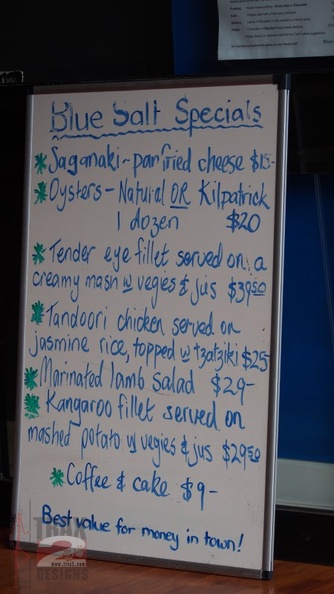 Blue Salt Specials
* Saganaki - panfried cheese $15-
* Oysters - Natural OR Kilpatrick
1 dozen $20
* Tender eye fillet served on a
creamy mash w vegies & jus $39.50
* Tandoori chicken served on
jasmine rice, topped w tzatziki $25
* Marinated lamb salad $29-
* Kangaroo fillet served on
mashed potato w vegies & jus $29.50
* Coffee & cake $9-
Best value for money in town!
TRAX
2
DESIGNS